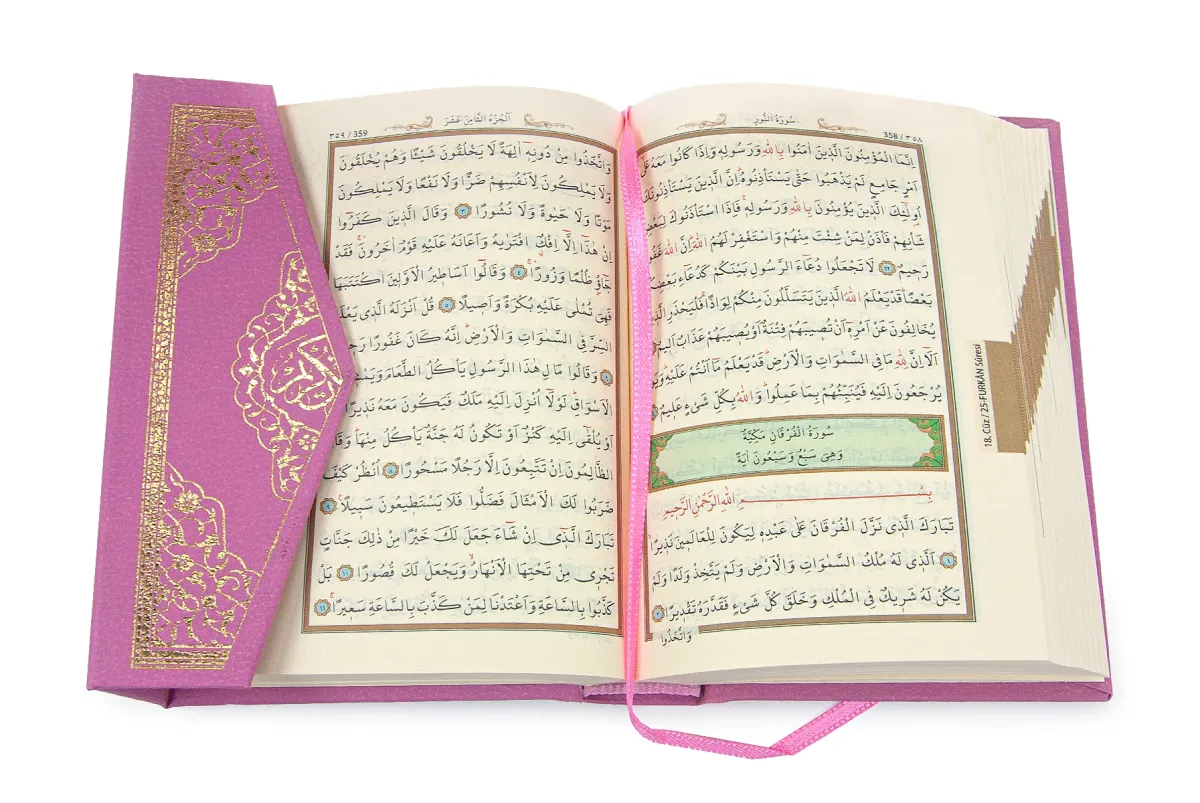 سُورَةُ النُّورِ
358 / ٣٥٨
اِنَّمَا الْمُؤْمِنُونَ الَّذ۪ينَ اٰمَنُوا بِاللّٰهِ وَرَسُولِه۪ وَاِذَا كَانُوا مَعَهُ عَلٰٓى
اَمْرٍ جَامِعٍ لَمْ يَذْهَبُوا حَتّٰى يَسْتَأْذِنُوهُۜ اِنَّ الَّذ۪ينَ يَسْتَأْذِنُونَكَ
اُو۬لٰٓئِكَ الَّذ۪ينَ يُؤْمِنُونَ بِاللّٰهِ وَرَسُولِه۪ۚ فَاِذَا اسْتَأْذَنُوكَ لِبَعْضِ
شَأْنِهِمْ فَأْذَنْ لِمَنْ شِئْتَ مِنْهُمْ وَاسْتَغْفِرْ لَهُمُ اللّٰهَۜ اِنَّ اللّٰهَ غَفُورٌ
رَح۪يمٌ ﴿٦٢﴾ لَا تَجْعَلُوا دُعَٓاءَ الرَّسُولِ بَيْنَكُمْ كَدُعَٓاءِ بَعْضِكُمْ
بَعْضًاۜ قَدْ يَعْلَمُ اللّٰهُ الَّذ۪ينَ يَتَسَلَّلُونَ مِنْكُمْ لِوَاذًاۚ فَلْيَحْذَرِ الَّذ۪ينَ
يُخَالِفُونَ عَنْ اَمْرِه۪ٓ اَنْ تُص۪يبَهُمْ فِتْنَةٌ اَوْ يُص۪يبَهُمْ عَذَابٌ اَل۪يمٌ
اَلَٓا اِنَّ لِلّٰهِ مَا فِي السَّمٰوَاتِ وَالْاَرْضِۜ قَدْ يَعْلَمُ مَٓا اَنْتُمْ عَلَيْهِۜ وَيَوْمَ
يُرْجَعُونَ اِلَيْهِ فَيُنَبِّئُهُمْ بِمَا عَمِلُواۜ وَاللّٰهُ بِكُلِّ شَيْءٍ عَل۪يمٌ
سُورَةُ الْفُرْقَانِ مَكِّيَّةٌ
وَهِيَ سَبْعٌ وَسَبْعُونَ اٰيَةً
بِسْمِ اللّٰهِ الرَّحْمٰنِ الرَّح۪يمِ
تَبَارَكَ الَّذ۪ي نَزَّلَ الْفُرْقَانَ عَلٰى عَبْدِه۪ لِيَكُونَ لِلْعَالَم۪ينَ نَذ۪يرًاۙ
﴿١﴾ اَلَّذ۪ي لَهُ مُلْكُ السَّمٰوَاتِ وَالْاَرْضِ وَلَمْ يَتَّخِذْ وَلَدًا وَلَمْ
يَكُنْ لَهُ شَر۪يكٌ فِي الْمُلْكِ وَخَلَقَ كُلَّ شَيْءٍ فَقَدَّرَهُ تَقْد۪يرًا ﴿٢﴾
وَاتَّخَذُوا
18. Cüz / 25-FURKÂN Sûresi
اَلْجُزْءُ الثَّامِنَ عَشَرَ
٣٥٩ / 359
وَاتَّخَذُوا مِنْ دُونِه۪ٓ اٰلِهَةً لَا يَخْلُقُونَ شَيْـًٔا وَهُمْ يُخْلَقُونَ
وَلَا يَمْلِكُونَ لِاَنْفُسِهِمْ ضَرًّا وَلَا نَفْعًا وَلَا يَمْلِكُونَ
مَوْتًا وَلَا حَيٰوةً وَلَا نُشُورًا ﴿٣﴾ وَقَالَ الَّذ۪ينَ كَفَرُٓوا
اِنْ هٰذَٓا اِلَّٓا اِفْكٌۨ افْتَرٰيهُ وَاَعَانَهُ عَلَيْهِ قَوْمٌ اٰخَرُونَۚ فَقَدْ
جَٓاؤُ۫ ظُلْمًا وَزُورًاۚ ﴿٤﴾ وَقَالُٓوا اَسَاط۪يرُ الْاَوَّل۪ينَ اكْتَتَبَهَا
فَهِيَ تُمْلٰى عَلَيْهِ بُكْرَةً وَاَص۪يلًا ﴿٥﴾ قُلْ اَنْزَلَهُ الَّذ۪ي يَعْلَمُ
السِّرَّ فِي السَّمٰوَاتِ وَالْاَرْضِۜ اِنَّهُ كَانَ غَفُورًا رَح۪يمًا
﴿٦﴾ وَقَالُوا مَالِ هٰذَا الرَّسُولِ يَأْكُلُ الطَّعَامَ وَيَمْش۪ي
الْاَسْوَاقِۜ لَوْلَٓا اُنْزِلَ اِلَيْهِ مَلَكٌ فَيَكُونَ مَعَهُ نَذ۪يرًاۙ
اَوْ يُلْقٰٓى اِلَيْهِ كَنْزٌ اَوْ تَكُونُ لَهُ جَنَّةٌ يَأْكُلُ مِنْهَاۜ وَقَالَ
الظَّالِمُونَ اِنْ تَتَّبِعُونَ اِلَّا رَجُلًا مَسْحُورًا ﴿٨﴾ اُنْظُرْ كَيْفَ
ضَرَبُوا لَكَ الْاَمْثَالَ فَضَلُّوا فَلَا يَسْتَط۪يعُونَ سَب۪يلًا۟ ﴿٩﴾
تَبَارَكَ الَّذ۪ٓي اِنْ شَٓاءَ جَعَلَ لَكَ خَيْرًا مِنْ ذٰلِكَ جَنَّاتٍ
تَجْر۪ي مِنْ تَحْتِهَا الْاَنْهَارُۙ وَيَجْعَلْ لَكَ قُصُورًا ﴿١٠﴾ بَلْ
كَذَّبُوا بِالسَّاعَةِ وَاَعْتَدْنَا لِمَنْ كَذَّبَ بِالسَّاعَةِ سَع۪يرًاۚ ﴿١١﴾